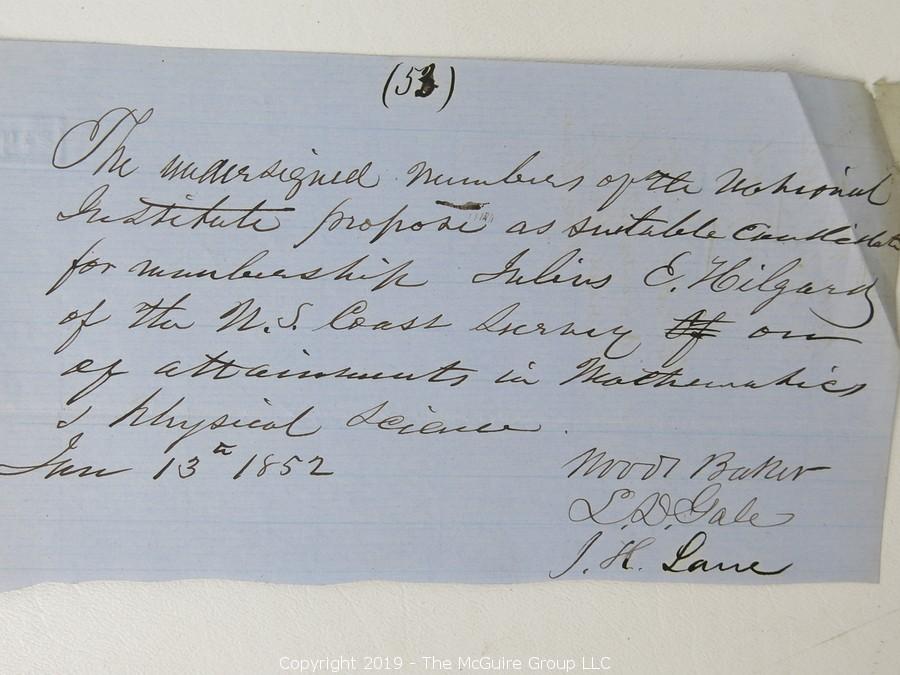 (53)
The undersigned members of the National
Institute propose as suitable candidate
for membership Julius E. Hilgard
of the U.S. Coast Survey on
of attainments in Mathematics
& Physical Science.
Jan 13th 1852
Woods Baker
L. D. Gale
J. H. Lane
Copyright 2019 - The McGuire Group LLC